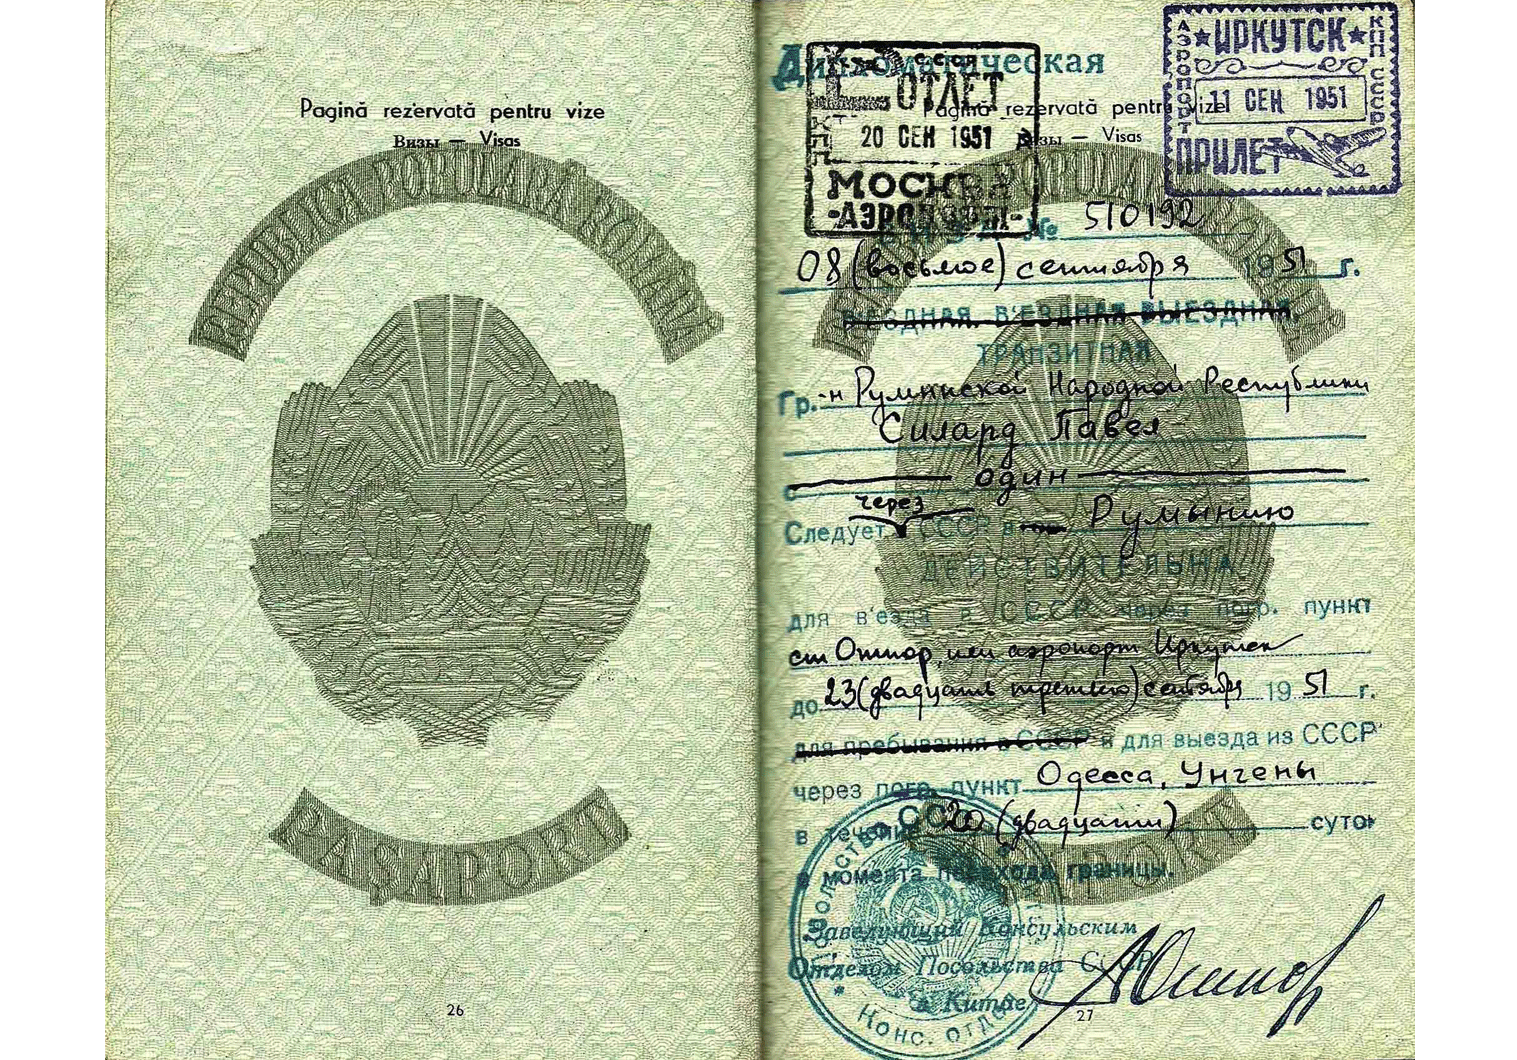 Pagină rezervată pentru vize
Визы — Visas
REPUBLICA POPULARĂ ROMÂNĂ
PAȘAPORT
26
Дипломатическая
СССР
ОТЛЕТ
КПП
20 СЕН 1951
МОСКВА
-АЭРОПОРТ-
★ИРКУТСК★
АЭРОПОРТ
КПП СССР
11 СЕН 1951
ПРИЛЕТ
Pagină rezervată pentru vize
Визы — Visas
ВИЗА № 510192
08 (восьмое) сентября 1951 г.
В'ЕЗДНАЯ ВЫЕЗДНАЯ
ТРАНЗИТНАЯ
Гр.-н Румынской Народной Республики
Силард Павел
с один
через
Следует СССР в Румынию
ДЕЙСТВИТЕЛЬНА
для в'езда в СССР через погр. пункт
ст Отпор, или аэропорт Иркутск
до 23 (двадцать третьего) сентября 1951 г.
для пребывания в СССР и для выезда из СССР
через погр. пункт Одесса, Унгены
в течение 20 (двадцати) суток
с момента перехода границы.
Заведующий Консульским
Отделом Посольства СССР
в Китае
Посольство СССР
Конс. отдел
PAȘAPORT
27